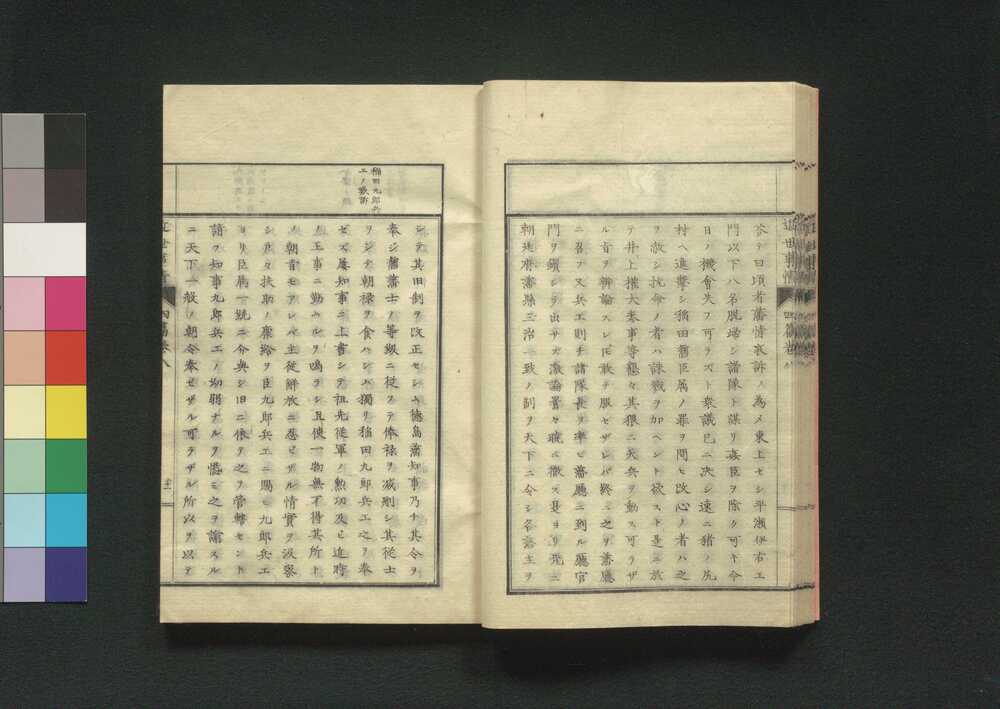 答テ曰頃者藩情哀訴ノ為メ東上セシ平瀬伊右エ
門以下八名脱場シ諸隊ト謀リ姦臣ヲ除ク可キ今
日ノ機會失フ可ラスト衆議已ニ决シ速ニ猪ノ尻
村ヘ進撃シ稲田舊臣属ノ罪ヲ問ヒ改心ノ者ハ之
ヲ赦シ抗命ノ者ハ誅戮ヲ加ヘント欲スト是ニ於
テ井上權大参事等懇々其猥ニ兵ヲ動ス可ラザ
ル旨ヲ辨論スレ𪜈敢テ服セザレバ終ニ之ヲ藩廳
ニ召フ又兵エ則チ諸隊長ヲ率ヒ藩廳ニ到ル廳官
門ヲ鎖シテ出サズ激論置々暁ニ徹ス是ヨリ先
朝廷府藩縣三治一致ノ制ヲ天下ニ令シ各藩主ヲ
近世事情 四篇巻八
稲田九郎兵
エノ歎訴
シテ其旧制ヲ改正セシム徳島藩知事乃チ其令ヲ
奉シ舊藩士ノ等級ニ従フテ俸禄ヲ减削シ其従士
ヲシテ朝禄ヲ食ハシム獨リ稲田九郎兵エ之ヲ奉
セズ屡知事ニ上書シテ祖先従軍ノ勲功及ヒ近時
ノ王事ニ勤ムルヲ鳴ラシ且使一物無不得其所ト
ノ朝旨モアレバ主従解放ニ忍ビザル情實ヲ汲察
シ
ヨリ臣属一統ニ分與シ旧ニ依テ之ヲ管轄セント
請フ知事九郎兵エノ幼弱ナルヲ憐ミ之ヲ諭スル
ニ天下一般ノ朝令奉セザル可ラザル所以ヲ以テ
近世事情 四篇巻八